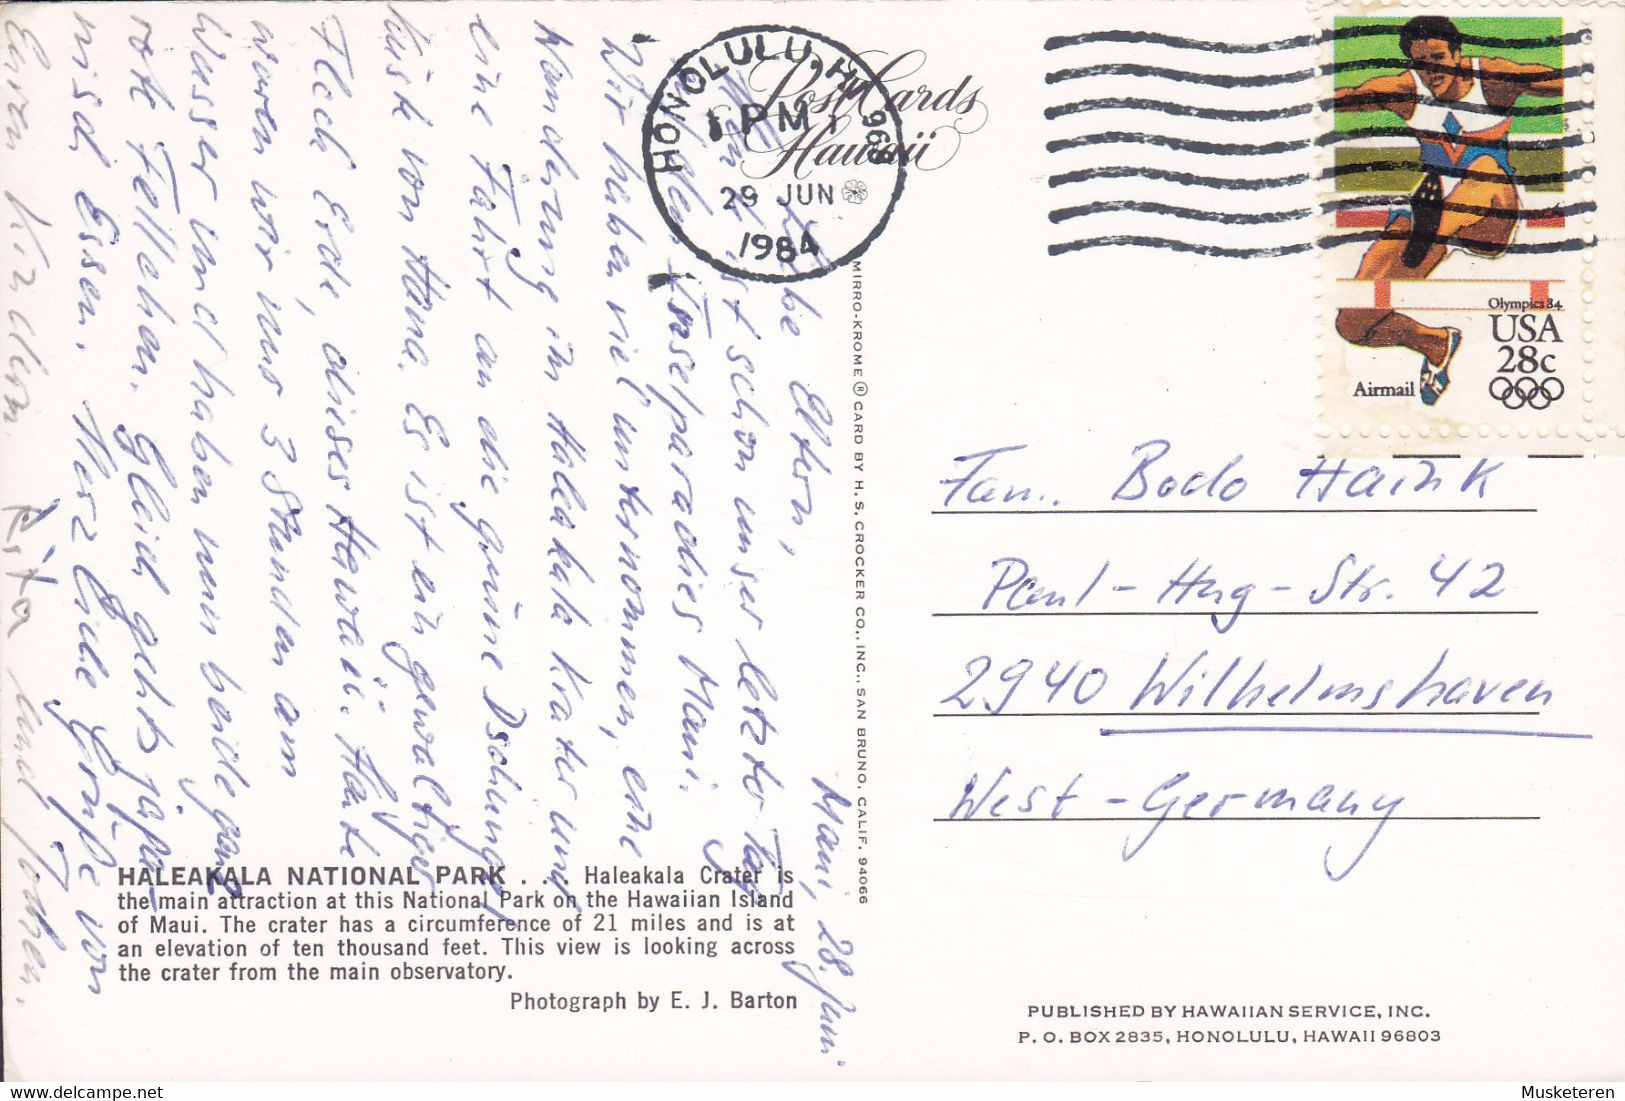 HONOLULU, HI 968
PM
29 JUN
1984
Post Cards
Hawaii
Olympics 84
USA
28c
Airmail
Maui, 28. Juni
Liebe Eltern,
ist schon unser letzter Tag
Inselparadies Maui.
Wir haben viel unternommen, eine
Wanderung im Haleakala Krater und
eine Fahrt an die grüne Dschungel
küste von Hana. Es ist ein gewaltiges
Fleck Erde, dieses Hawaii. Heute
waren wir nur 3 Stunden am
Wasser und haben nun beide ganz
rote Fellchen. Gleich gehts japa-
nisch Essen. Herzliche Grüße von
Euren Kindern Rita und Jochen.
MIRRO-KROME ® CARD BY H. S. CROCKER CO., INC., SAN BRUNO, CALIF. 94066
Fam. Bodo Haink
Paul-Hug-Str. 42
2940 Wilhelmshaven
West-Germany
HALEAKALA NATIONAL PARK . . . Haleakala Crater is
the main attraction at this National Park on the Hawaiian Island
of Maui. The crater has a circumference of 21 miles and is at
an elevation of ten thousand feet. This view is looking across
the crater from the main observatory.
Photograph by E. J. Barton
PUBLISHED BY HAWAIIAN SERVICE, INC.
P. O. BOX 2835, HONOLULU, HAWAII 96803
Musketeren